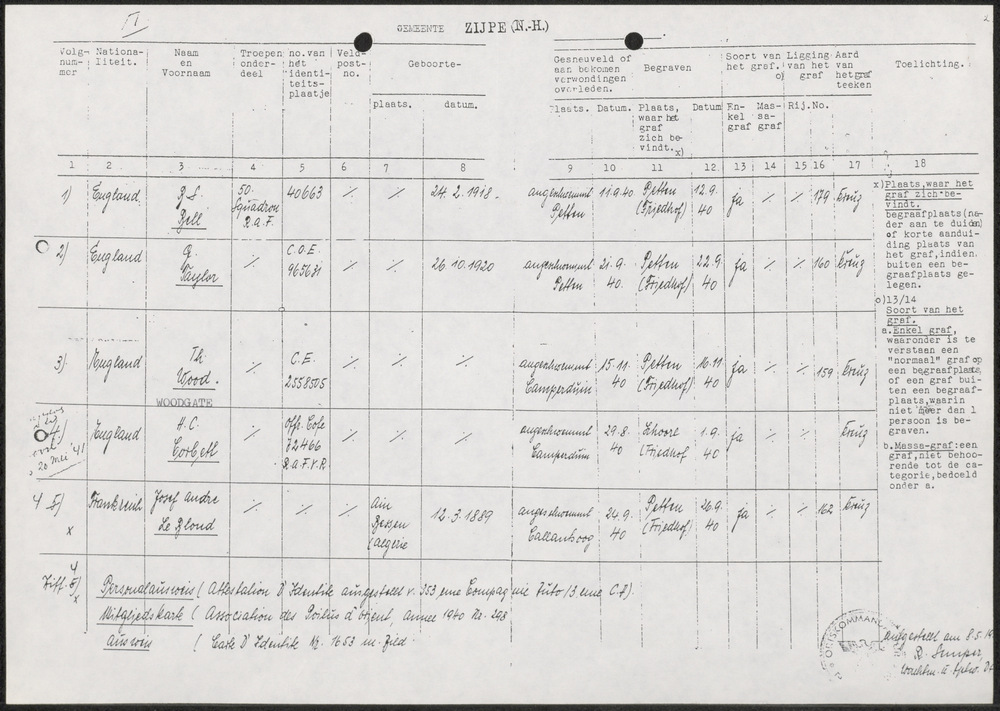 VI
GEMEENTE ZIJPE (N.-H.)
2
Volg-
num-
mer
Nationa-
liteit.
Naam
en
Voornaam
Troepen
onder-
deel
no.van
hét
identi-
teits-
plaatje
Veld-
post-
no.
Geboorte-
plaats. datum.
Gesneuveld of
aan bekomen
verwondingen
overleden.
Plaats. Datum.
Begraven
Plaats,
waar het
graf
zich be-
vindt. x)
Datum
Soort van
het graf.
o)
En-
kel
graf
Mas-
sa-
graf
Ligging
van het
graf
Rij. No.
Aard
van
het graf
teeken
Toelichting.
1 2 3 4 5 6 7 8 9 10 11 12 13 14 15 16 17 18
1) England R S Bell 50. Squadron R.A.F. 40663 % % 24.2.1918. angeschwemmt Petten 11.9.40 Petten (Friedhof) 12.9. 40 ja % % 179 Kreuz
2) England G. Taylor % C.O.E. 965631 % % 26.10.1920 angeschwemmt Petten 21.9. 40. Petten (Friedhof) 22.9. 40 ja % % 160 Kreuz
3) England Th. Wood. % C.E. 2558505 % % % angeschwemmt Camperduin 15.11. 40 Petten (Friedhof) 16.11. 40 ja % % 159 Kreuz
WOODGATE
4) England H.C. Corbett % Offr. Cofe 72466 R.A.F.V.R % % % angeschwemmt Camperduin 29.8. 40 Schoorl (Friedhof 1.9. 40 ja % % Kreuz
20 Mei '41
4 5) x Frankreich Josef Andre Le Blond % % % Ain Bessen (Algerie 12.3.1889 angeschwemmt Callantsoog 24.9. 40 Petten (Friedhof) 26.9. 40 ja % % 162 Kreuz
x)Plaats,waar het
graf zich be-
vindt.
begraafplaats(na-
der aan te duiden)
of korte aandui-
ding plaats van
het graf,indien
buiten een be-
graafplaats ge-
legen.
o)13/14
Soort van het
graf.
a.Enkel graf,
waaronder is te
verstaan een
"normaal" graf op
een begraafplaats
of een graf bui-
ten een begraaf-
plaats,waarin
niet meer dan 1
persoon is be-
graven.
b.Massa-graf:een
graf,niet behoo-
rende tot de ca-
tegorie,bedoeld
onder a.
Ziff. 4 5) x Personalausweis (Attestation D'Identite ausgestellt v. 353 eme Compagnie Auto/3 eme C.F).
Mitgliedskarte (Association des Poilus d'Orient, annee 1940 No. 298
Ausweis (Carte D'Identite No. 1653 m.
ORTSKOMMAN
ausgestellt am 8.5.19